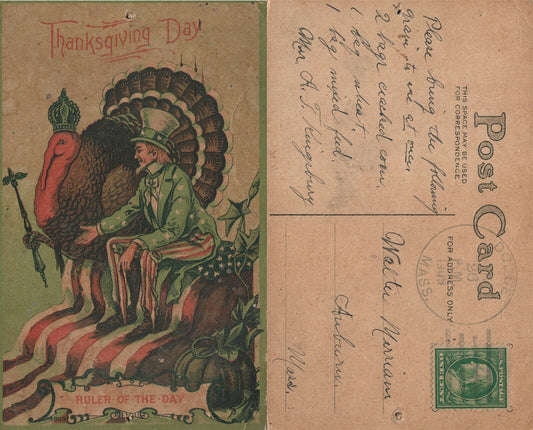 Thanksgiving Day
RULER OF THE DAY
Post Card
THIS SPACE MAY BE USED
FOR CORRESPONDENCE
FOR ADDRESS ONLY
Please bring the following
grain to me at once.
2 bags cracked corn.
1 bag wheat
1 bag mixed feed.
Mrs. A. J. Kingsbury
Walter Merriam
Auburn.
Mass.
26
P.M.
1909
MASS.
U.S. POSTAGE
ONE CENT